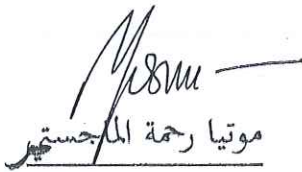 موتيا رحمة الماجستير